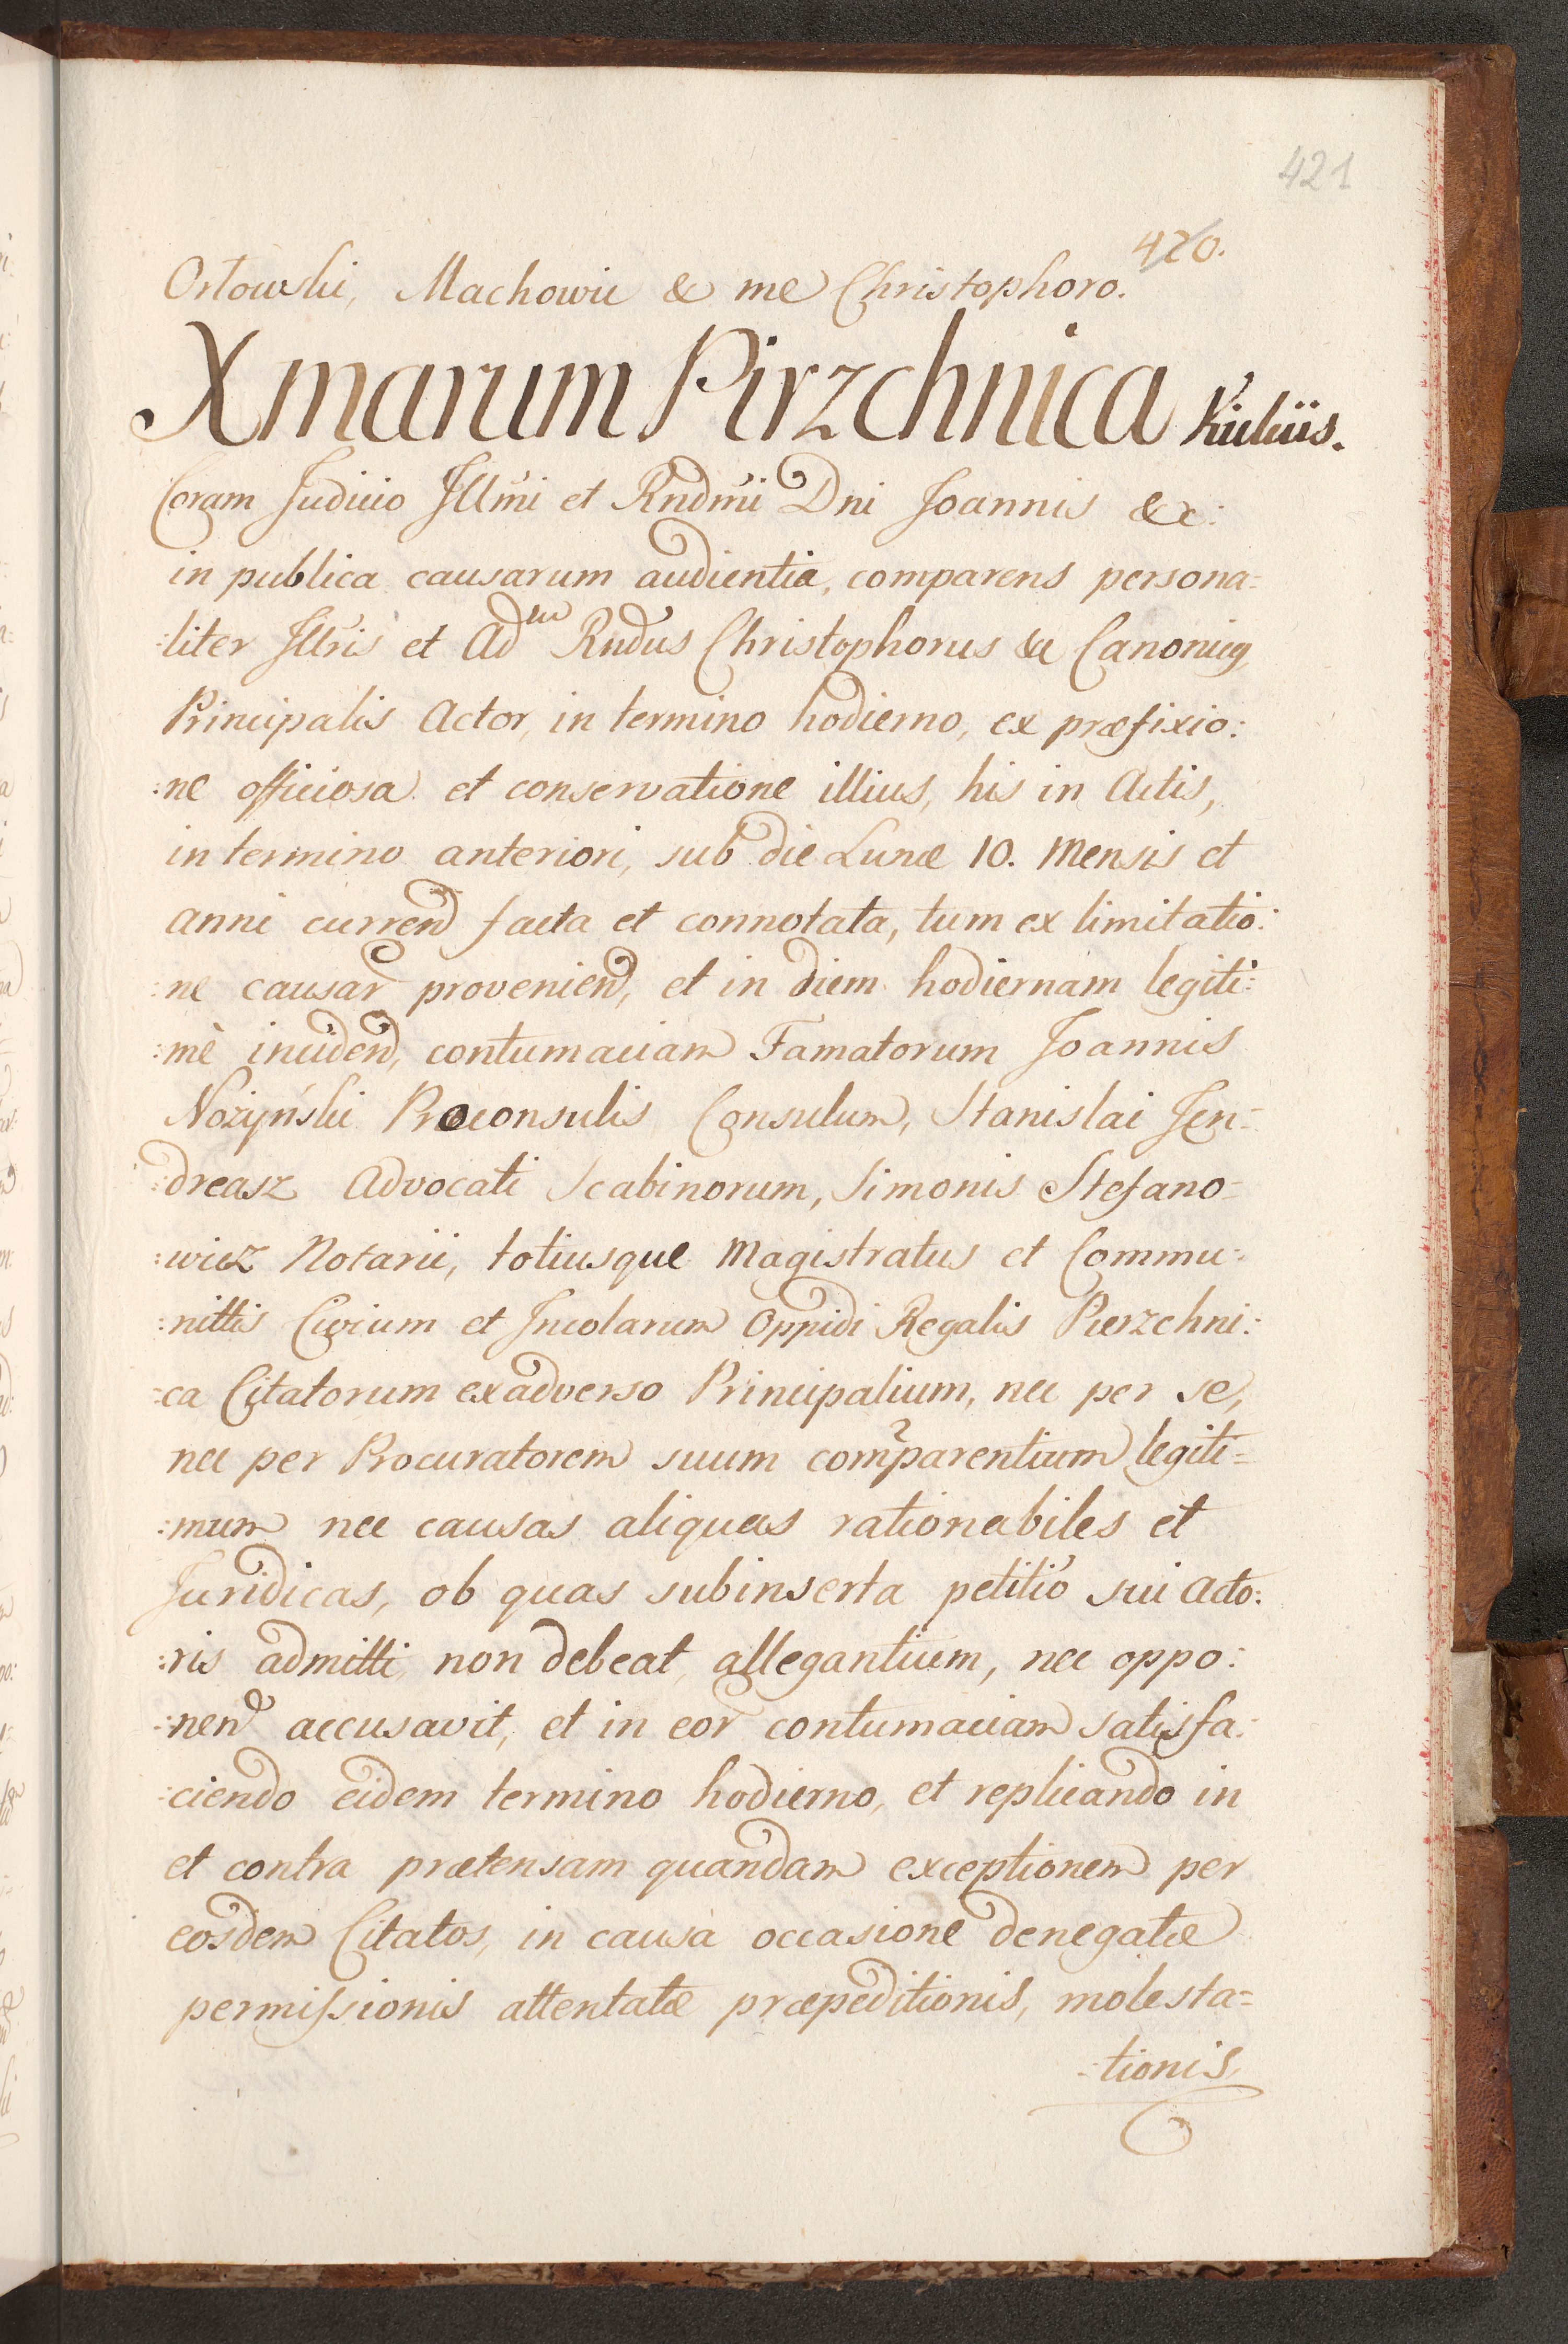 421
420.
Orłowski, Machowic & me Christophoro.
Xmarum Pirzchnica Kieliis.
Coram Judicio Illmi et Rndmi Dni Joannis &c:
in publica causarum audientia, comparens persona=
:liter Illris et Adm Rndus Christophorus &c Canonicq
Principalis Actor, in termino hodierno, ex præfixio:
:ne officiosa et conservatione illius, his in Actis,
in termino anteriori, sub die Lunæ 10. Mensis et
anni currend facta et connotata, tum ex limitatio:
:ne causar proveniend, et in diem hodiernam legiti:
:mè inciden̄d, contumaciam Famatorum Joannis
Nozyński Proconsulis Consulum, Stanislai Jen=
:dreasz Advocati Scabinorum, Simonis Stefano=
:wicz Notarii, totiusque Magistratus et Commu:
:nittis Civium et Incolarum Oppidi Regalis Pierzchni:
=ca Citatorum exadverso Principalium, nec per se,
nec per Procuratorem suum comparentium legiti=
:mum nec causas aliquas rationabiles et
Juridicas, ob quas subinserta petitio sui Acto:
:ris admitti non debeat, allegantium, nec oppo:
:nend accusavit, et in eor contumaciam satisfa:
:ciendo eidem termino hodierno, et replicando in
et contra prætensam quandam exceptionem per
eosdem Citatos, in causa occasione denegatæ
permissionis attentatæ præpeditionis, molesta=
:tionis,